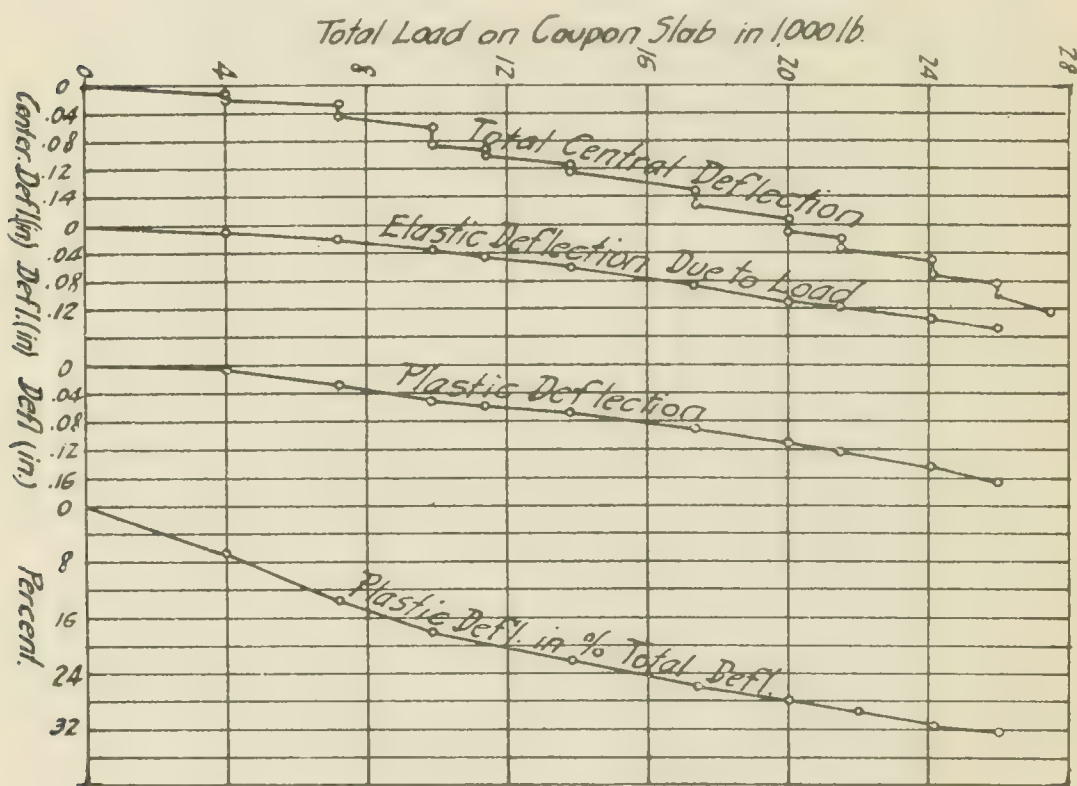 Total Load on Coupon Slab in 1,000 lb.
0 4 8 12 16 20 24 28
Center. Defl.(in) Defl.(in) Defl (in.) Percent.
0
.04
.08
.12
.14
0
.04
.08
.12
0
.04
.08
.12
.16
0
8
16
24
32
Total Central Deflection
Elastic Deflection Due to Load
Plastic Deflection
Plastic Defl. in % Total Defl.